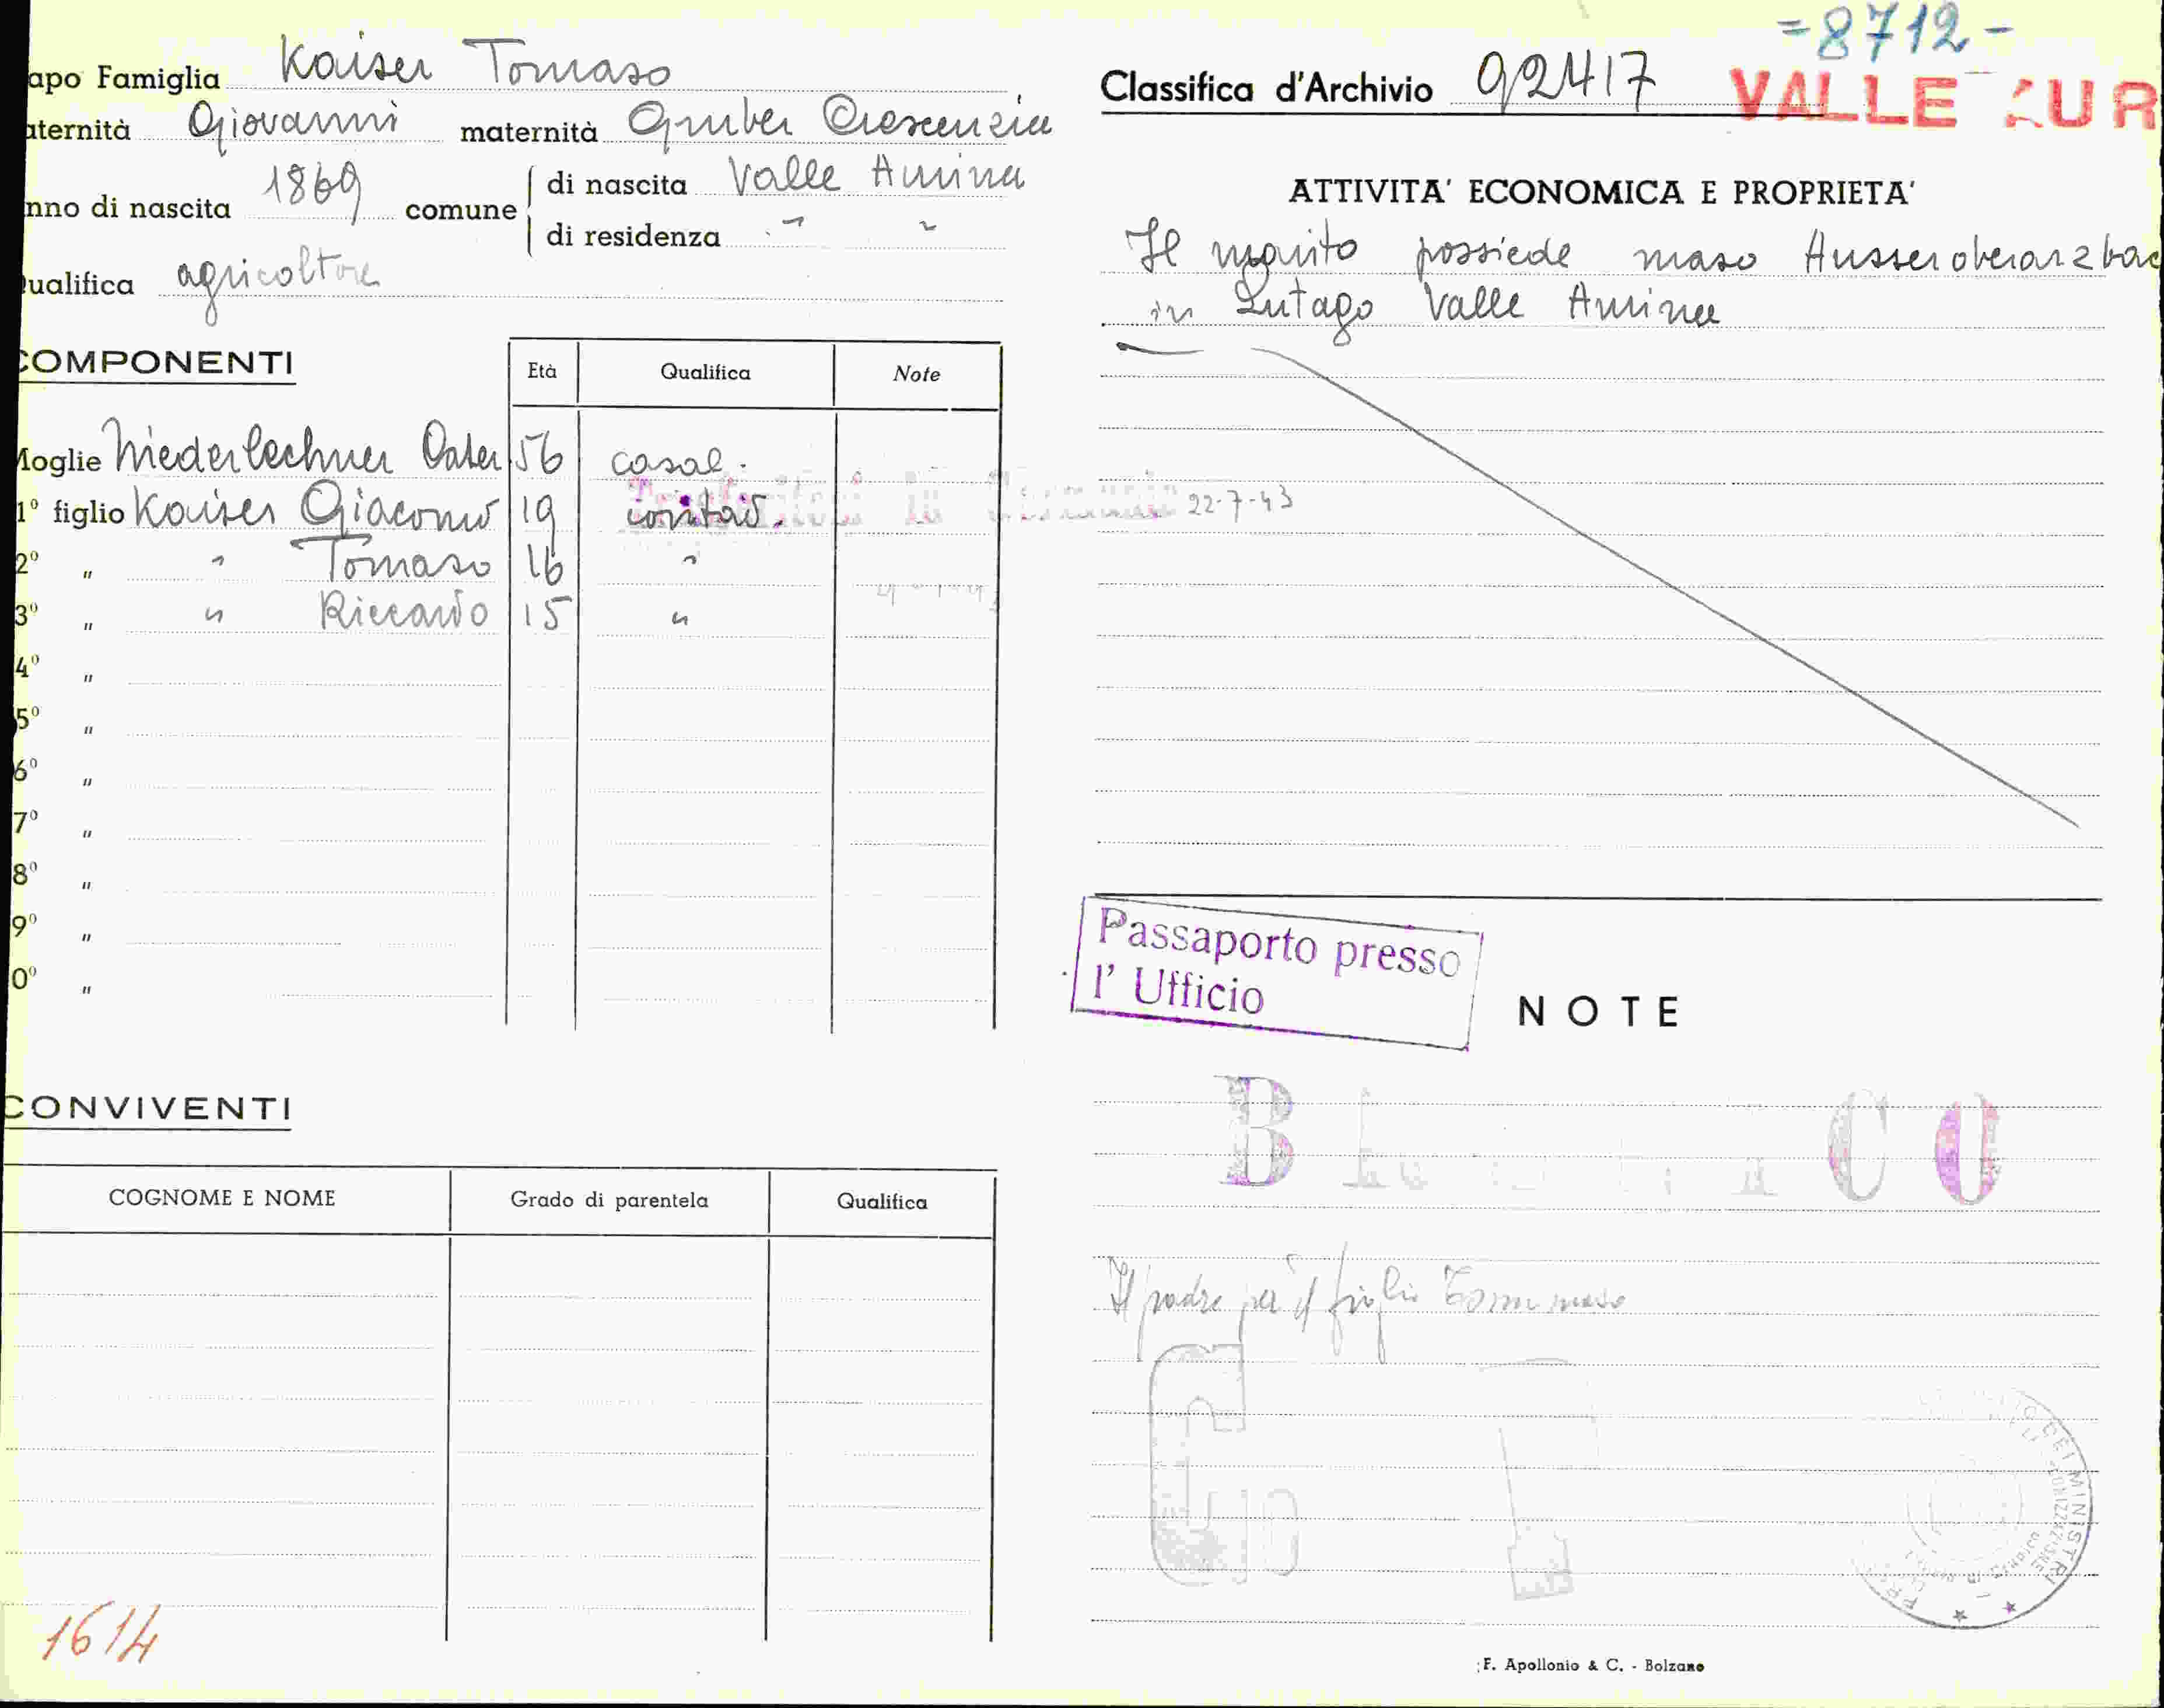 apo Famiglia Kaiser Tomaso
aternità Giovanni maternità Gruber Crescenzia
nno di nascita 1869 comune di nascita Valle Aurina
di residenza " "
ualifica agricoltore
COMPONENTI
Età Qualifica Note
Moglie Niederlechner 56 casal.
1º figlio Kaiser Giacomo 19 contad. 22-7-43
2º " " Tomaso 16 "
3º " " Riccardo 15 "
4º "
5º "
6º "
7º "
8º "
9º "
0º "
CONVIVENTI
COGNOME E NOME Grado di parentela Qualifica
1614
=8712-
Classifica d'Archivio 92417 VALLE AUR
ATTIVITA' ECONOMICA E PROPRIETA'
Il marito possiede maso Ausseroberarzbac
in Lutago Valle Aurina
Passaporto presso
l' Ufficio
NOTE
Il padre per il figlio Tommaso
DEI MINISTRI
F. Apollonio & C. - Bolzano